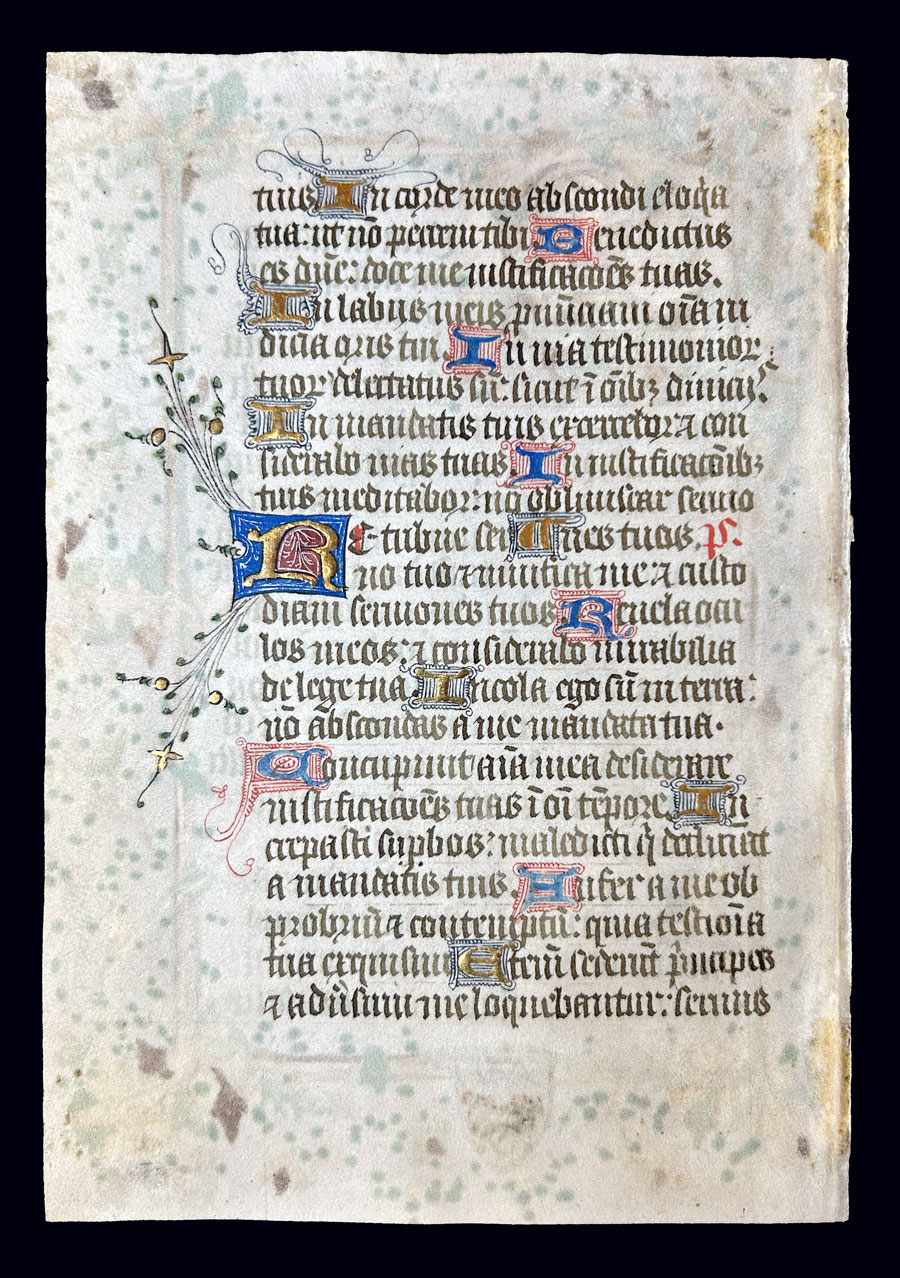 tuis In corde meo abscondi eloq̄a
tua: ut nō peccem tibi Benedictus
es dn̄e: doce me iustificacōēs tuas.
In labiis meis pnūciaui oīa iu
dicia oris tui In uia testimonior
tuor delectatus sū: sicut ī oībꝫ diuiciis
In mandatis tuis exercebor ⁊ con
siderabo uias tuas In iustificacōibꝫ
tuis meditabor: nō obliuiscar sermo
REtribue ser T nes tuos. p̄s.
uo tuo ⁊ uiuifica me ⁊ custo
diam sermones tuos Reuela ocu
los meos: ⁊ considerabo mirabilia
de lege tua Incola ego sū in terra:
nō abscondas a me mandata tua.
Concupiuit aīa mea desiderare
iustificacōēs tuas ī oī tēpore. In
crepasti supbos: maledicti q̄ declināt
a mandatis tuis. Aufer a me ob
probriū ⁊ contemptū: quia testiōīa
tua exquisiui Etenī sederūt p̄ncipes
⁊ adūsum me loquebantur: seruus